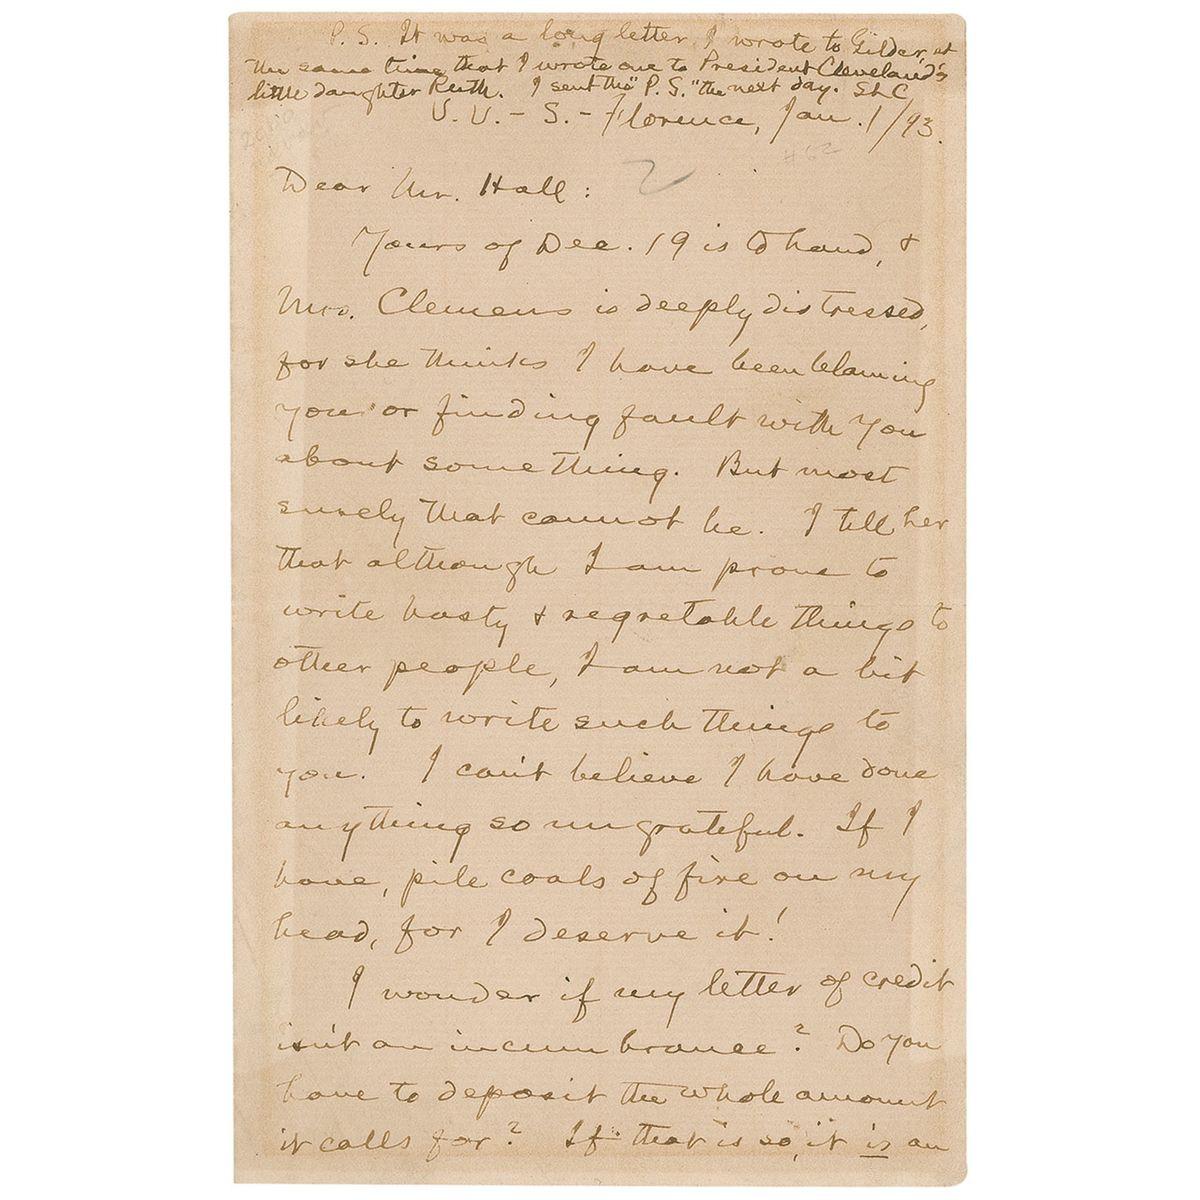 P.S. It was a long letter I wrote to Gilder, at
the same time that I wrote one to President Cleveland's
little daughter Ruth. I sent the "P.S." the next day. SLC
V. V. - S. - Florence, Jan. 1/93.
#62
2
Dear Mr. Hall:
Yours of Dec. 19 is to hand, &
Mrs. Clemens is deeply distressed,
for she thinks I have been blaming
you or finding fault with you
about something. But most
surely that cannot be. I tell her
that although I am prone to
write hasty & regretable things to
other people, I am not a bit
likely to write such things to
you. I can't believe I have done
anything so ungrateful. If I
have, pile coals of fire on my
head, for I deserve it!
I wonder if my letter of credit
isn't an incumbrance? Do you
have to deposit the whole amount
it calls for? If that is so, it is an